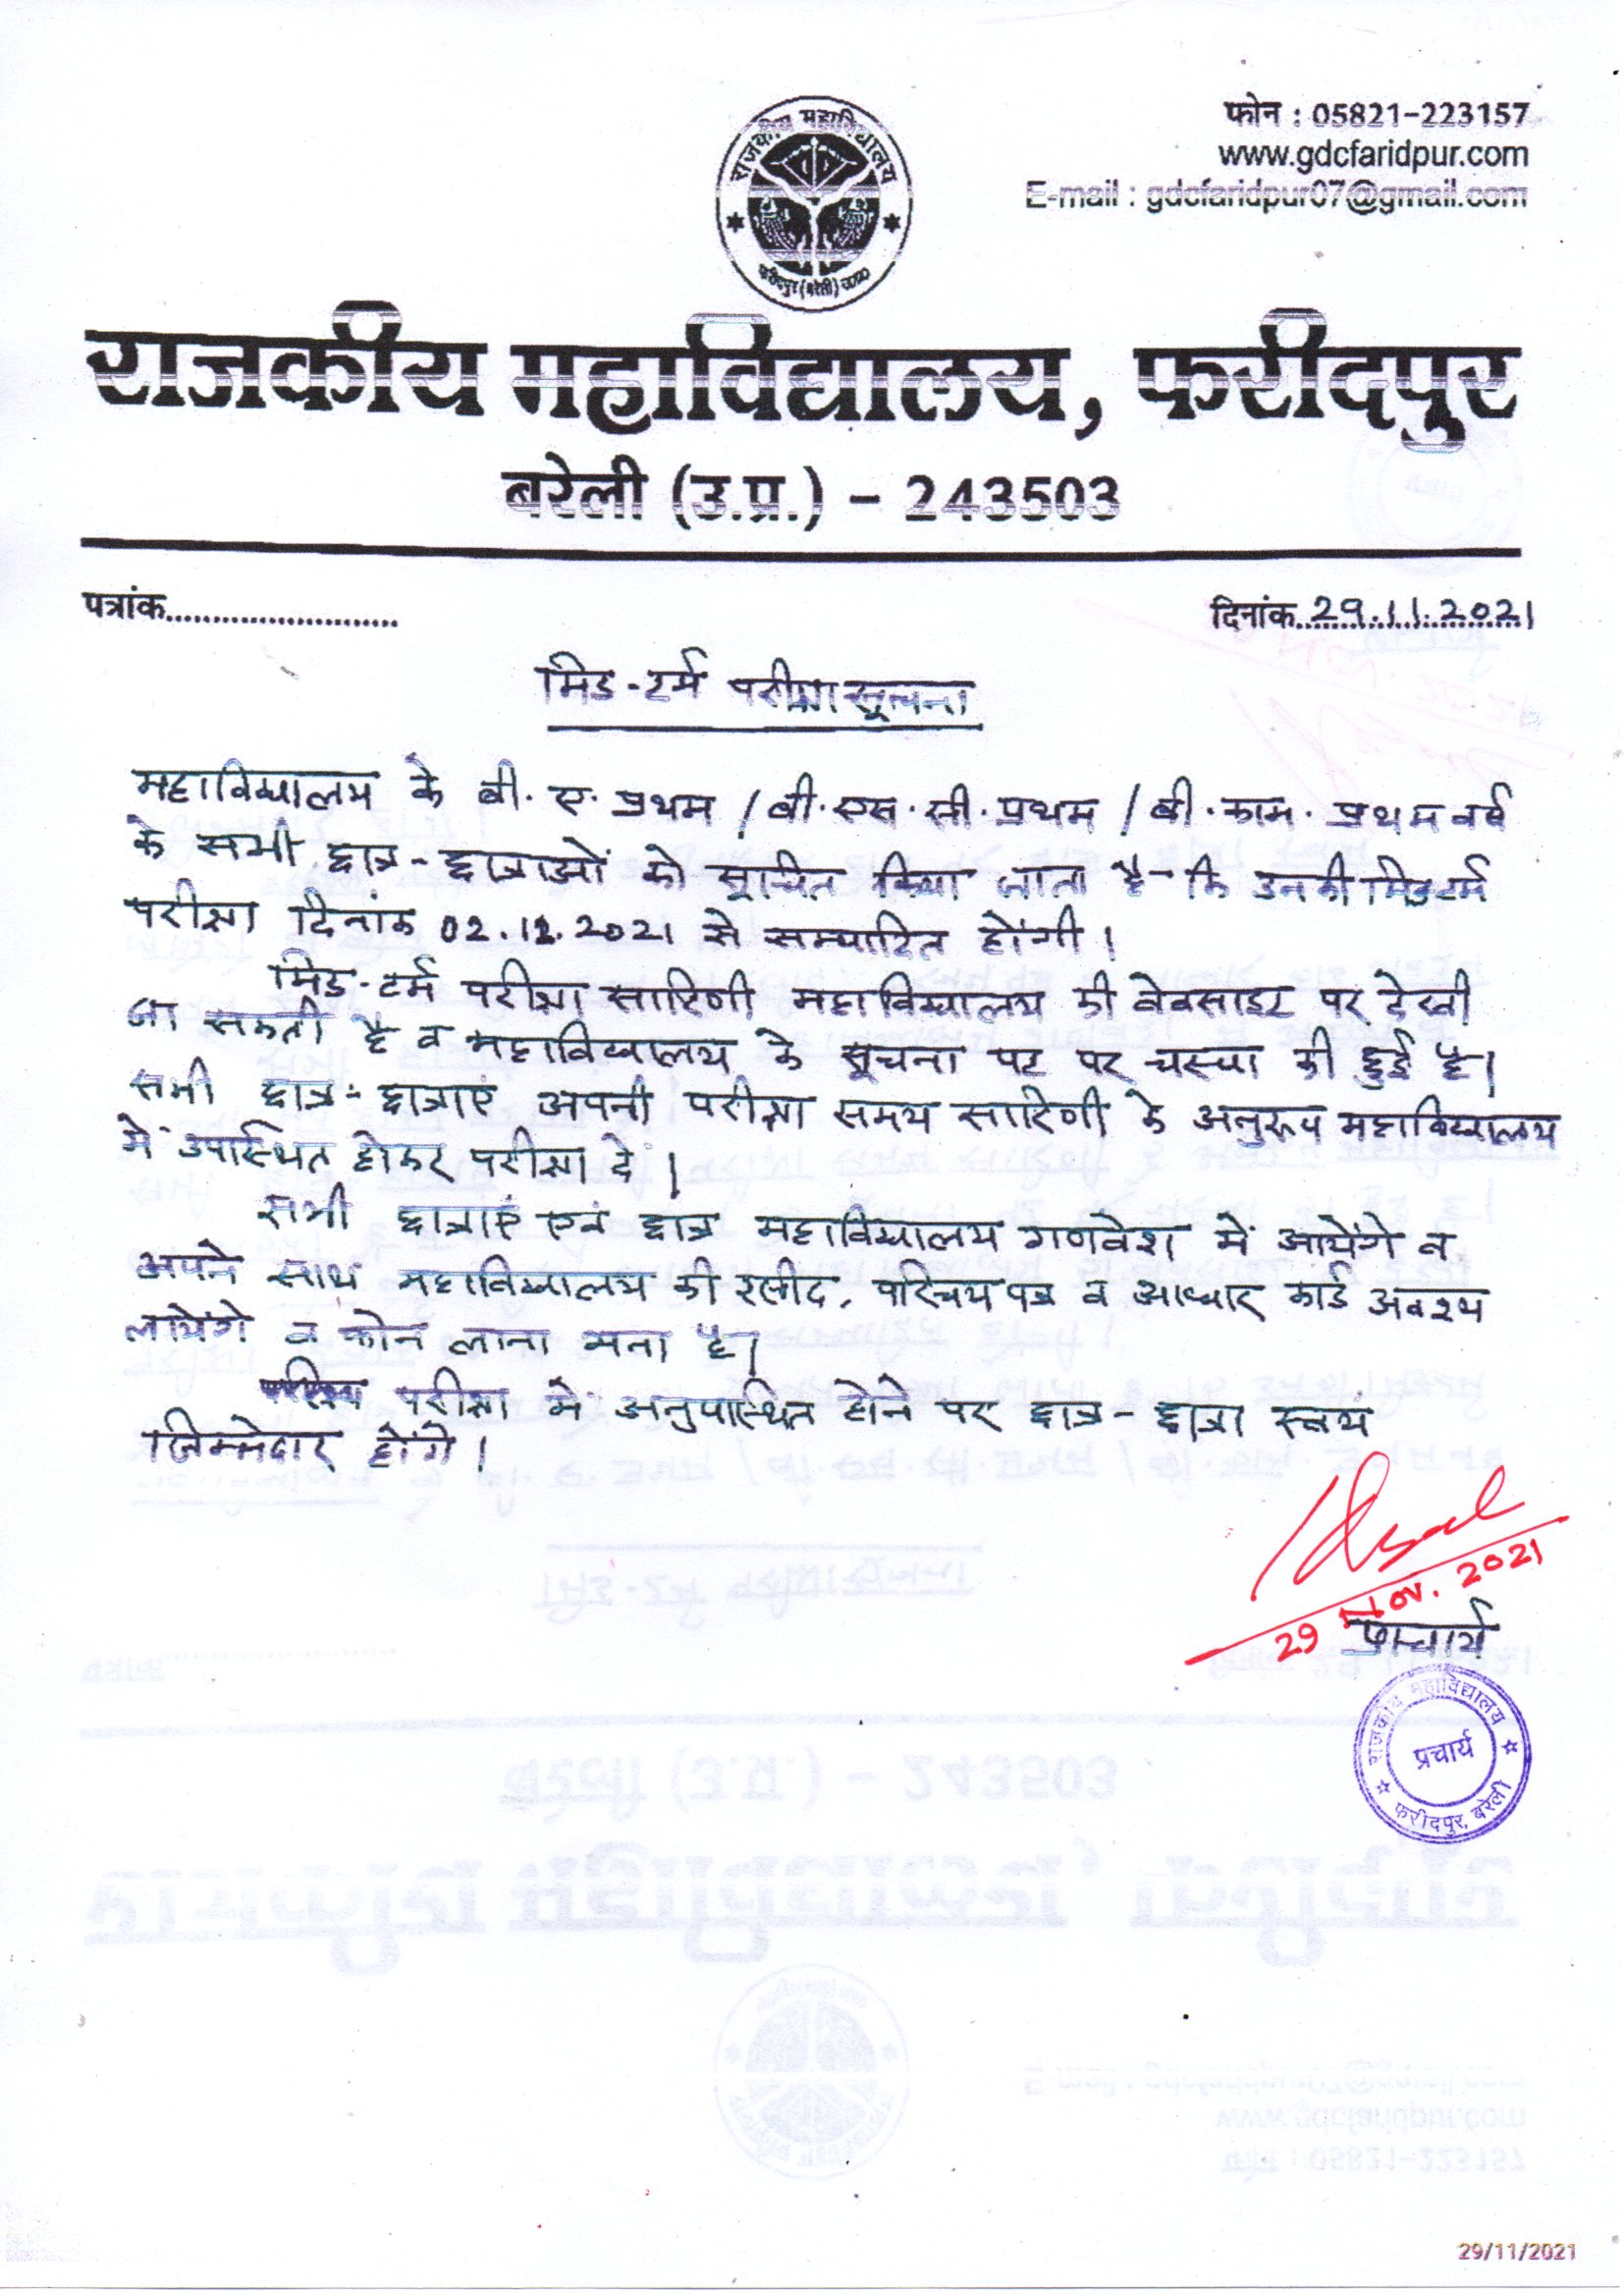 राजकीय महाविद्यालय
फरीदपुर (बरेली) उ०प्र०
फोन : 05821-223157
www.gdcfaridpur.com
E-mail : gdcfaridpur07@gmail.com
राजकीय महाविद्यालय, फरीदपुर
बरेली (उ.प्र.) - 243503
पत्रांक..........................
दिनांक 29.11.2021
मिड-टर्म परीक्षा सूचना
महाविद्यालय के बी. ए. प्रथम / बी. एस. सी. प्रथम / बी. काम. प्रथम वर्ष
के सभी छात्र-छात्राओं को सूचित किया जाता है कि उनकी मिडटर्म
परीक्षा दिनांक 02.12.2021 से सम्पादित होंगी।
मिड-टर्म परीक्षा सारिणी महाविद्यालय की वेवसाइट पर देखी
जा सकती है व महाविद्यालय के सूचना पट पर चस्पा की हुई है।
सभी छात्र-छात्राएं अपनी परीक्षा समय सारिणी के अनुरूप महाविद्यालय
में उपस्थित होकर परीक्षा दे।
सभी छात्राएं एवं छात्र महाविद्यालय गणवेश में आयेंगे व
अपने साथ महाविद्यालय की रसीद, परिचय पत्र व आधार कार्ड अवश्य
लायेंगे व फोन लाना मना है।
परीक्षा में अनुपास्थित होने पर छात्र-छात्रा स्वयं
जिम्मेदार होंगे।
29 Nov. 2021
प्राचार्य
राजकीय महाविद्यालय
प्रचार्य
फरीदपुर, बरेली
29/11/2021